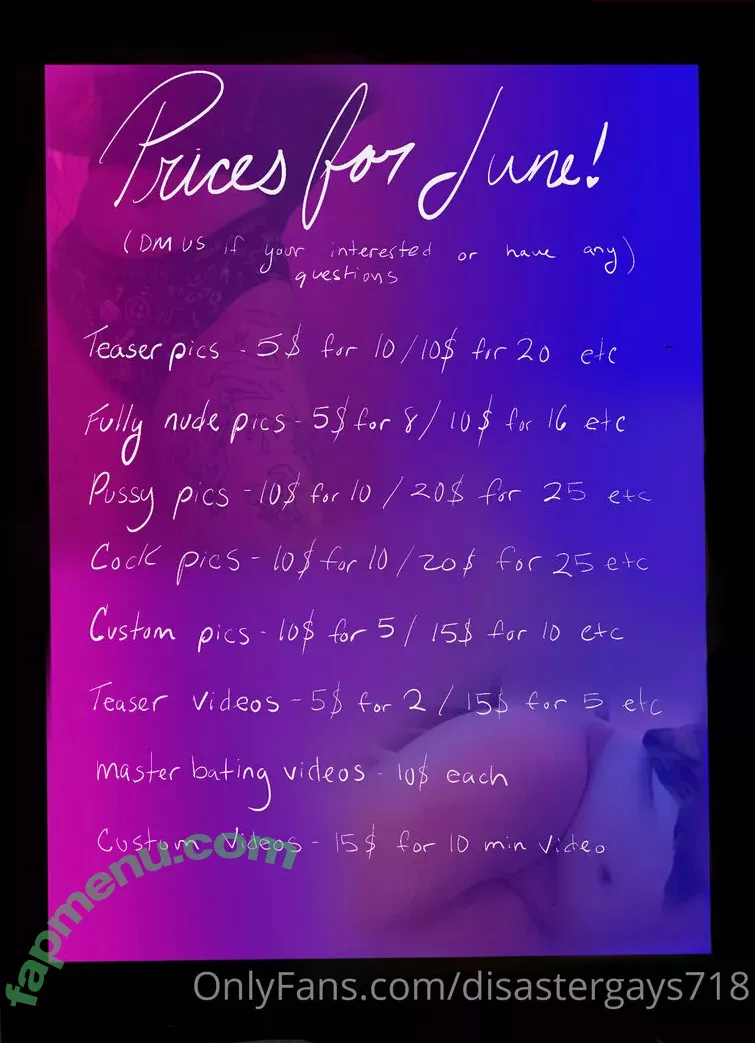 Prices for June!
(DM us if your interested or have any)
questions
Teaser pics - 5$ for 10/10$ for 20 etc
Fully nude pics - 5$ for 8/10$ for 16 etc
Pussy pics - 10$ for 10/20$ for 25 etc
Cock pics - 10$ for 10/20$ for 25 etc
Custom pics - 10$ for 5/15$ for 10 etc
Teaser videos - 5$ for 2/15$ for 5 etc
master bating videos - 10$ each
Custom videos - 15$ for 10 min video
fapmenu.com
OnlyFans.com/disastergays718